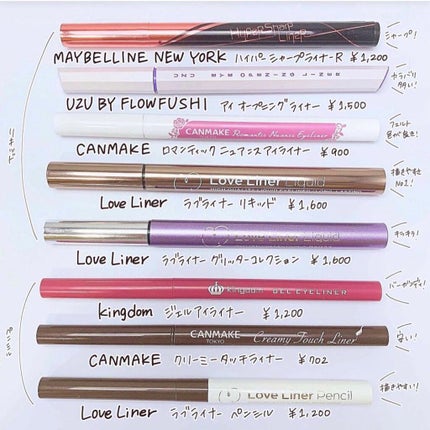 HyperSharp Liner
シャープ!
MAYBELLINE NEW YORK ハイパーシャープライナーR ¥1,200
UZU EYE OPENING LINER
カラバリ
UZU BY FLOWFUSHI アイ オープニングライナー ¥1,500
CANMAKE Romantic Nuance Eyeliner
フェルト
CANMAKE ロマンティック ニュアンスアイライナー ¥900
Love Liner Liquid
描きやすさ
No.1!
Love Liner ラブライナー リキッド ¥1,600
Love Liner Liquid
キラキラ!
Love Liner ラブライナー グリッターコレクション ¥1,600
kingdom GEL EYELINER
バーガンディ!
kingdom ジェルアイライナー ¥1,200
CANMAKE TOKYO Creamy Touch Liner
安い!
CANMAKE クリーミータッチライナー ¥702
Love Liner Pencil
描きやすい!
Love Liner ラブライナー ペンシル ¥1,200
リキッド